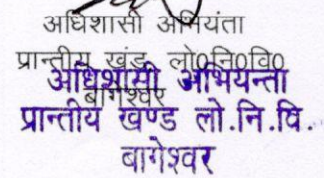 अधिशासी अभियंता
प्रान्तीय खंड लो0नि0वि0
बागेश्वर
अधिशासी अभियन्ता
प्रान्तीय खण्ड लो.नि.वि.
बागेश्वर